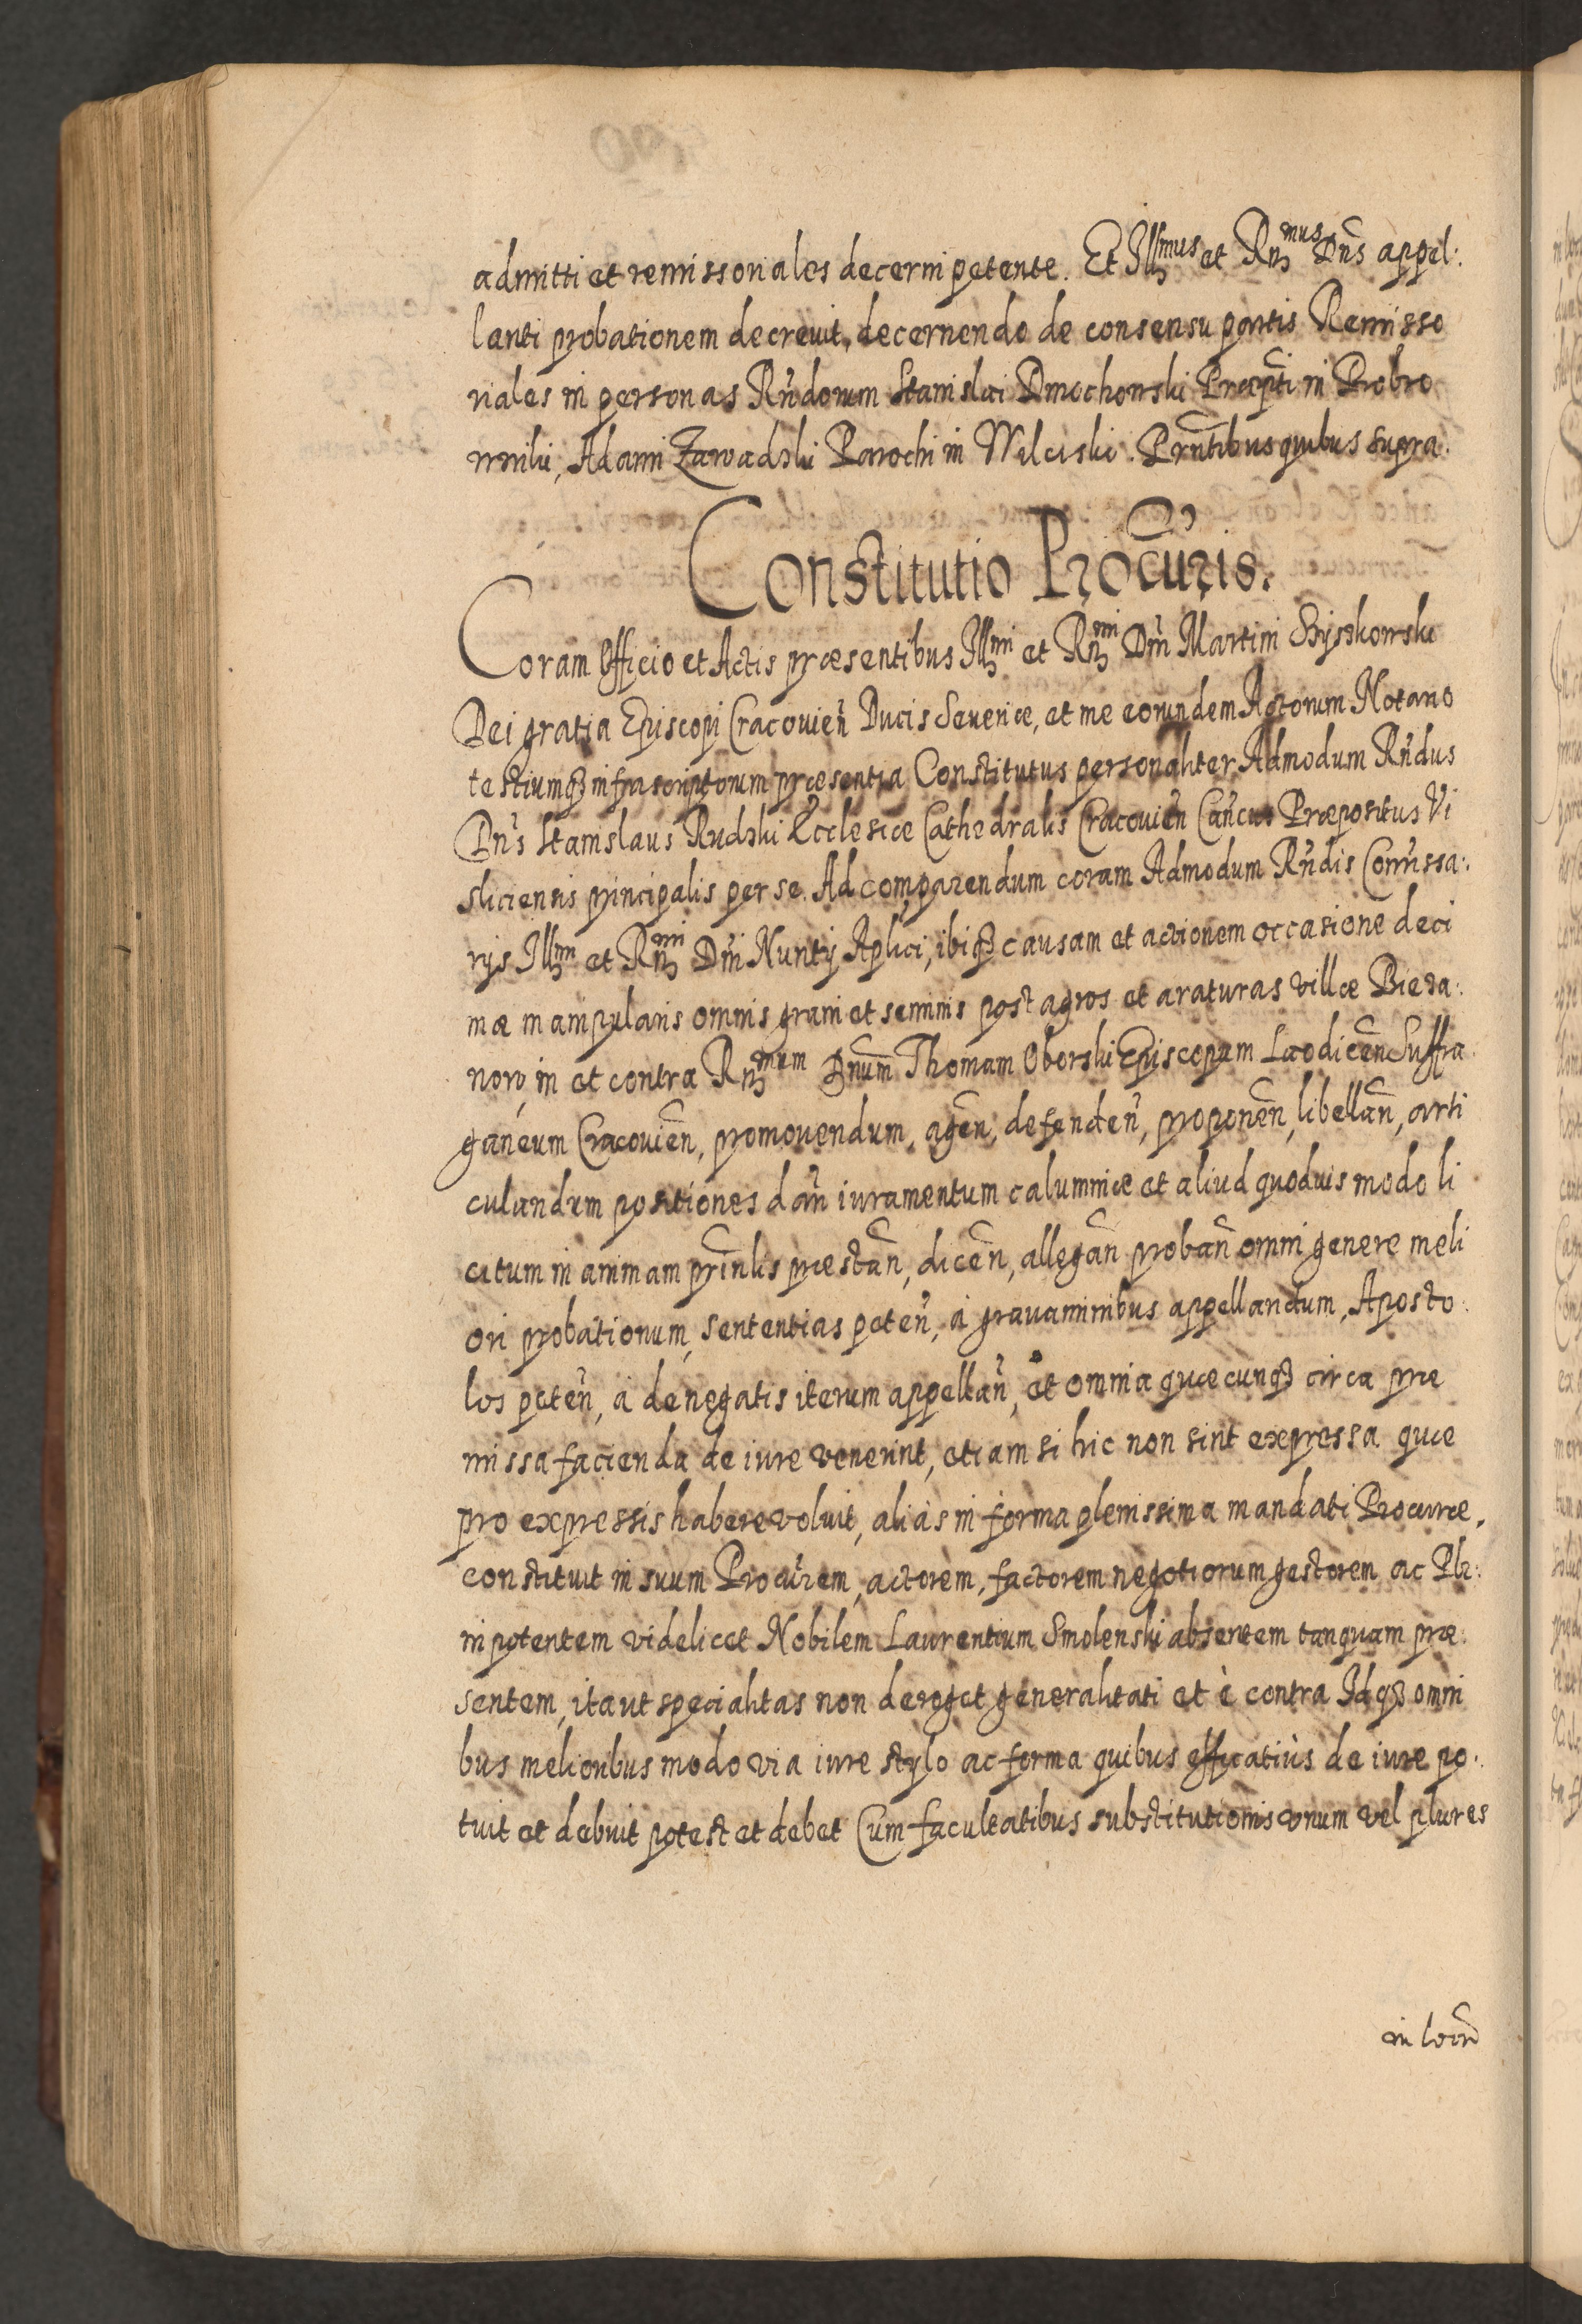 admitti et remissoriales decerni petente. Et Illmus et Rnmus Dn̄s appel:
lanti probationem decrevit, decernendo de consensu partis Remisso
riales in personas Rn̄dorum Stanislai Dmochowski Præpti in Dobro
, Adami Zawadzki Parochi in . Prn̄tibus quibus supra.
Constitutio Procūris.
Coram Officio et Actis præsentibus Illmi et Rnmi Dn̄i Martini Szyszkowski
Dei gratia Episcopi Cracouien̄ Ducis Seueriæ, et me eorundem Actorum Notario
testiumqʒ infrascriptorum præsentia Constitutus personaliter Admodum Rn̄dus
Dn̄s Stanislaus Rudzki Ecclesiæ Cathedralis Cracouien̄ Can̄cus Præpositus Vi
sliciensis principalis per se. Ad comparendum coram Admodum Rn̄dis Com̄issa:
rijs Illmi et Rnmi Dn̄i Nuntij Aplici, ibiqʒ causam et actionem occasione deci
mæ manipularis omnis grani et seminis post agros et araturas villæ Bieza:
now, in et contra Rnmum Dn̄um Thomam Oborski Episcopum Laodicen̄ Suffra
ganeum Cracouien̄, promouendum, agen̄, defenden̄, proponen̄, libellan̄, arti
culandum positiones dan̄ iuramentum calumniæ et aliud quoduis modo li
citum in animam prin̄lis præstan̄, dicen̄, allegan̄ proban̄ omni genere meli
ori probationum, sententias peten̄, à grauaminibus appellandum, Aposto:
los peten̄, à denegatis iterum appellan̄, et omnia quæcunqʒ circa præ
missa facienda de iure venerint, etiam si hic non sint expressa quæ
pro expressis habere voluit, aliàs in forma plenissima mandati Procuræ,
constituit in suum Procūrem, actorem, factorem negotiorum gestorem ac Ple:
nipotentem videlicet Nobilem Laurentium Smolenski absentem tanquam præ:
sentem, ita ut specialitas non deroget generalitati et è contra Idqʒ omni
bus melioribus modo via iure stylo ac forma quibus efficatiùs de iure po:
tuit et debuit potest et debet Cum facultatibus substitutionis vnum vel plures
in locū